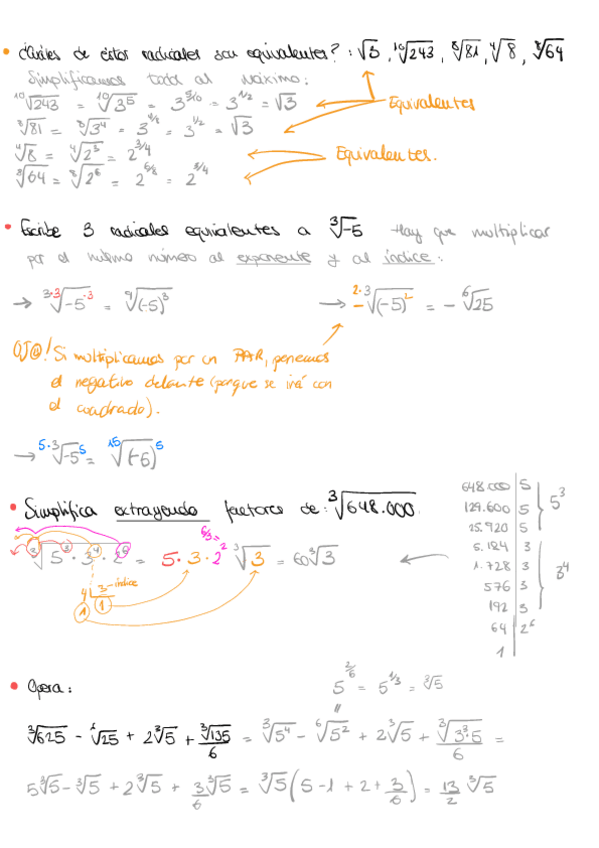 • ¿Cuáles de estos radicales son equivalentes? : √3, ¹⁰√243, ⁸√81, ⁴√8, ⁸√64
Simplificamos todo al máximo:
¹⁰√243 = ¹⁰√3⁵ = 3^5/10 = 3^1/2 = √3
Equivalentes
⁸√81 = ⁸√3⁴ = 3^4/8 = 3^1/2 = √3
⁴√8 = ⁴√2³ = 2^3/4
Equivalentes.
⁸√64 = ⁸√2⁶ = 2^6/8 = 2^3/4
• Escribe 3 radicales equivalentes a ³√-5 Hay que multiplicar
por el mismo número al exponente y al índice:
→ ³·³√-5·³ = ⁹√(-5)³ → 2·3 -√(-5)² = - ⁶√25
OJO! Si multiplicamos por un PAR, ponemos
el negativo delante (porque se irá con
el cuadrado).
→ ⁵·³√-5⁵ = ¹⁵√(-5)⁵
• Simplifica extrayendo factores de: ³√648.000
6/3=2
³√5³·3⁴·2⁶ = 5·3·2² ³√3 = 60³√3 ←
4 3 - índice
1 1
648.000 5
129.600 5 5³
25.920 5
5.184 3
1.728 3 3⁴
576 3
192 3
64 2⁶
1
• Opera:
5^2/6 = 5^1/3 = ³√5
"
³√625 - ⁶√25 + 2³√5 + ³√135/6 = ³√5⁴ - ⁶√5² + 2³√5 + ³√3³·5/6 =
5³√5 - ³√5 + 2³√5 + 3/6 ³√5 = ³√5 (5 - 1 + 2 + 3/6) = 13/2 ³√5